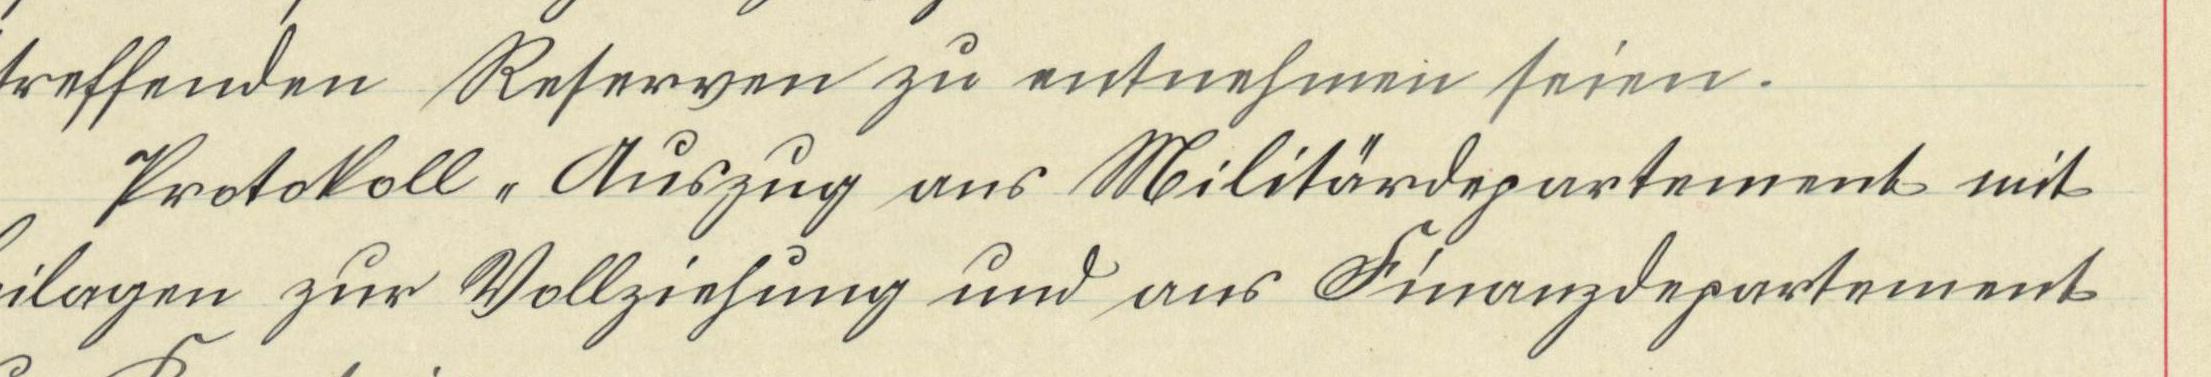 treffenden Reserven zu entnehmen seien.
Protokoll-Auszug ans Militärdepartement mit
eilagen zur Vollziehung und ans Finanzdepartement